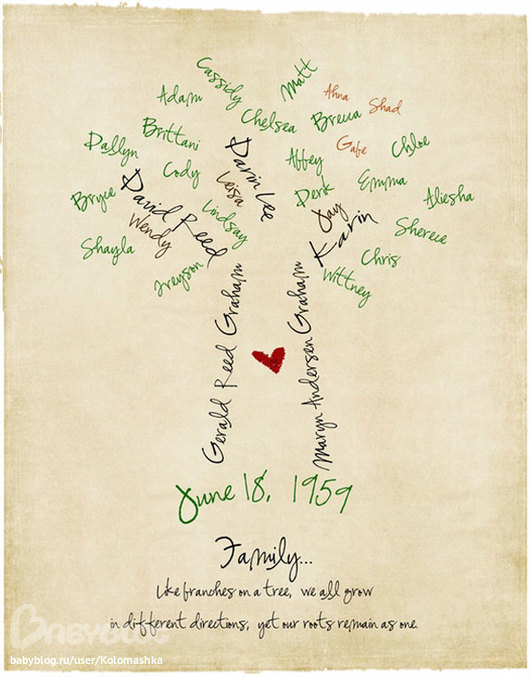 Cassidy
Matt
Adam
Ahna
Shad
Chelsea
Breua
Brittani
Dallyn
Darin Lee
Gabe
Chloe
Abbey
Cody
Leissa
Emma
Derk
Bryce
David Reed
Aliesha
Lindsay
Jay
Karin
Wendy
Sherece
Shayla
Chris
Greyson
Wittney
Gerald Reed Graham
Maryn Andersen Graham
June 18, 1959
Family...
Like branches on a tree, we all grow
in different directions, yet our roots remain as one.
BABYBLOG
babyblog.ru/user/Kolomashka